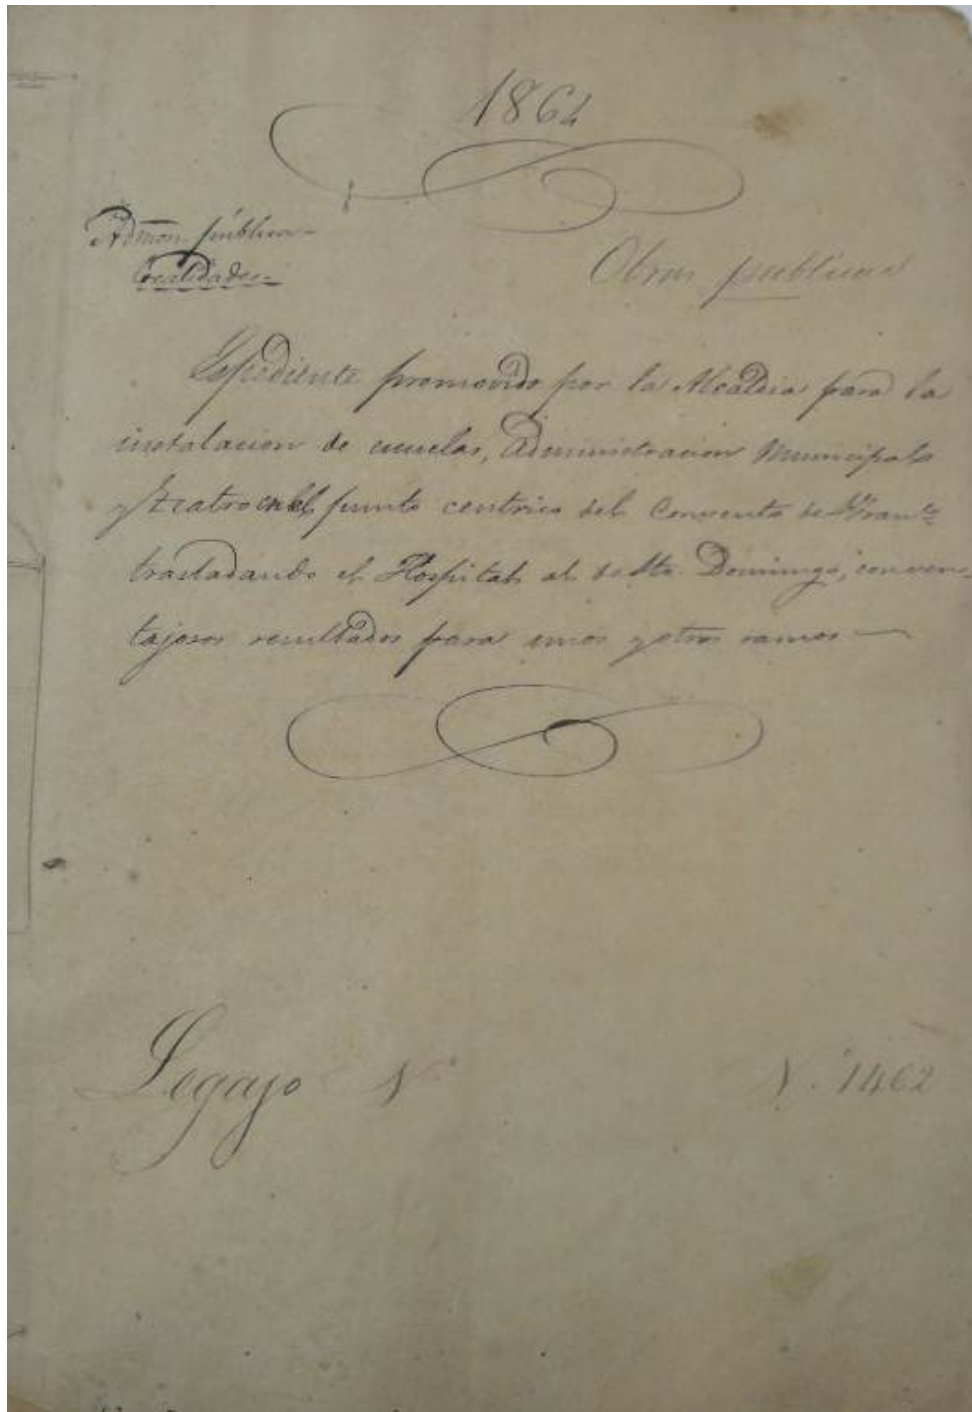 1864
Admon. pública
Localidades
Obras publicas
Espediente promovido por la Alcaldia para la
instalacion de escuelas, Administracion Municipal
y teatro en el punto centrico del Convento de Franco
trasladando el Hospital al de Sto. Domingo, con ven-
tajosos resultados para unos y otros ramos
Legajo N
N. 1462